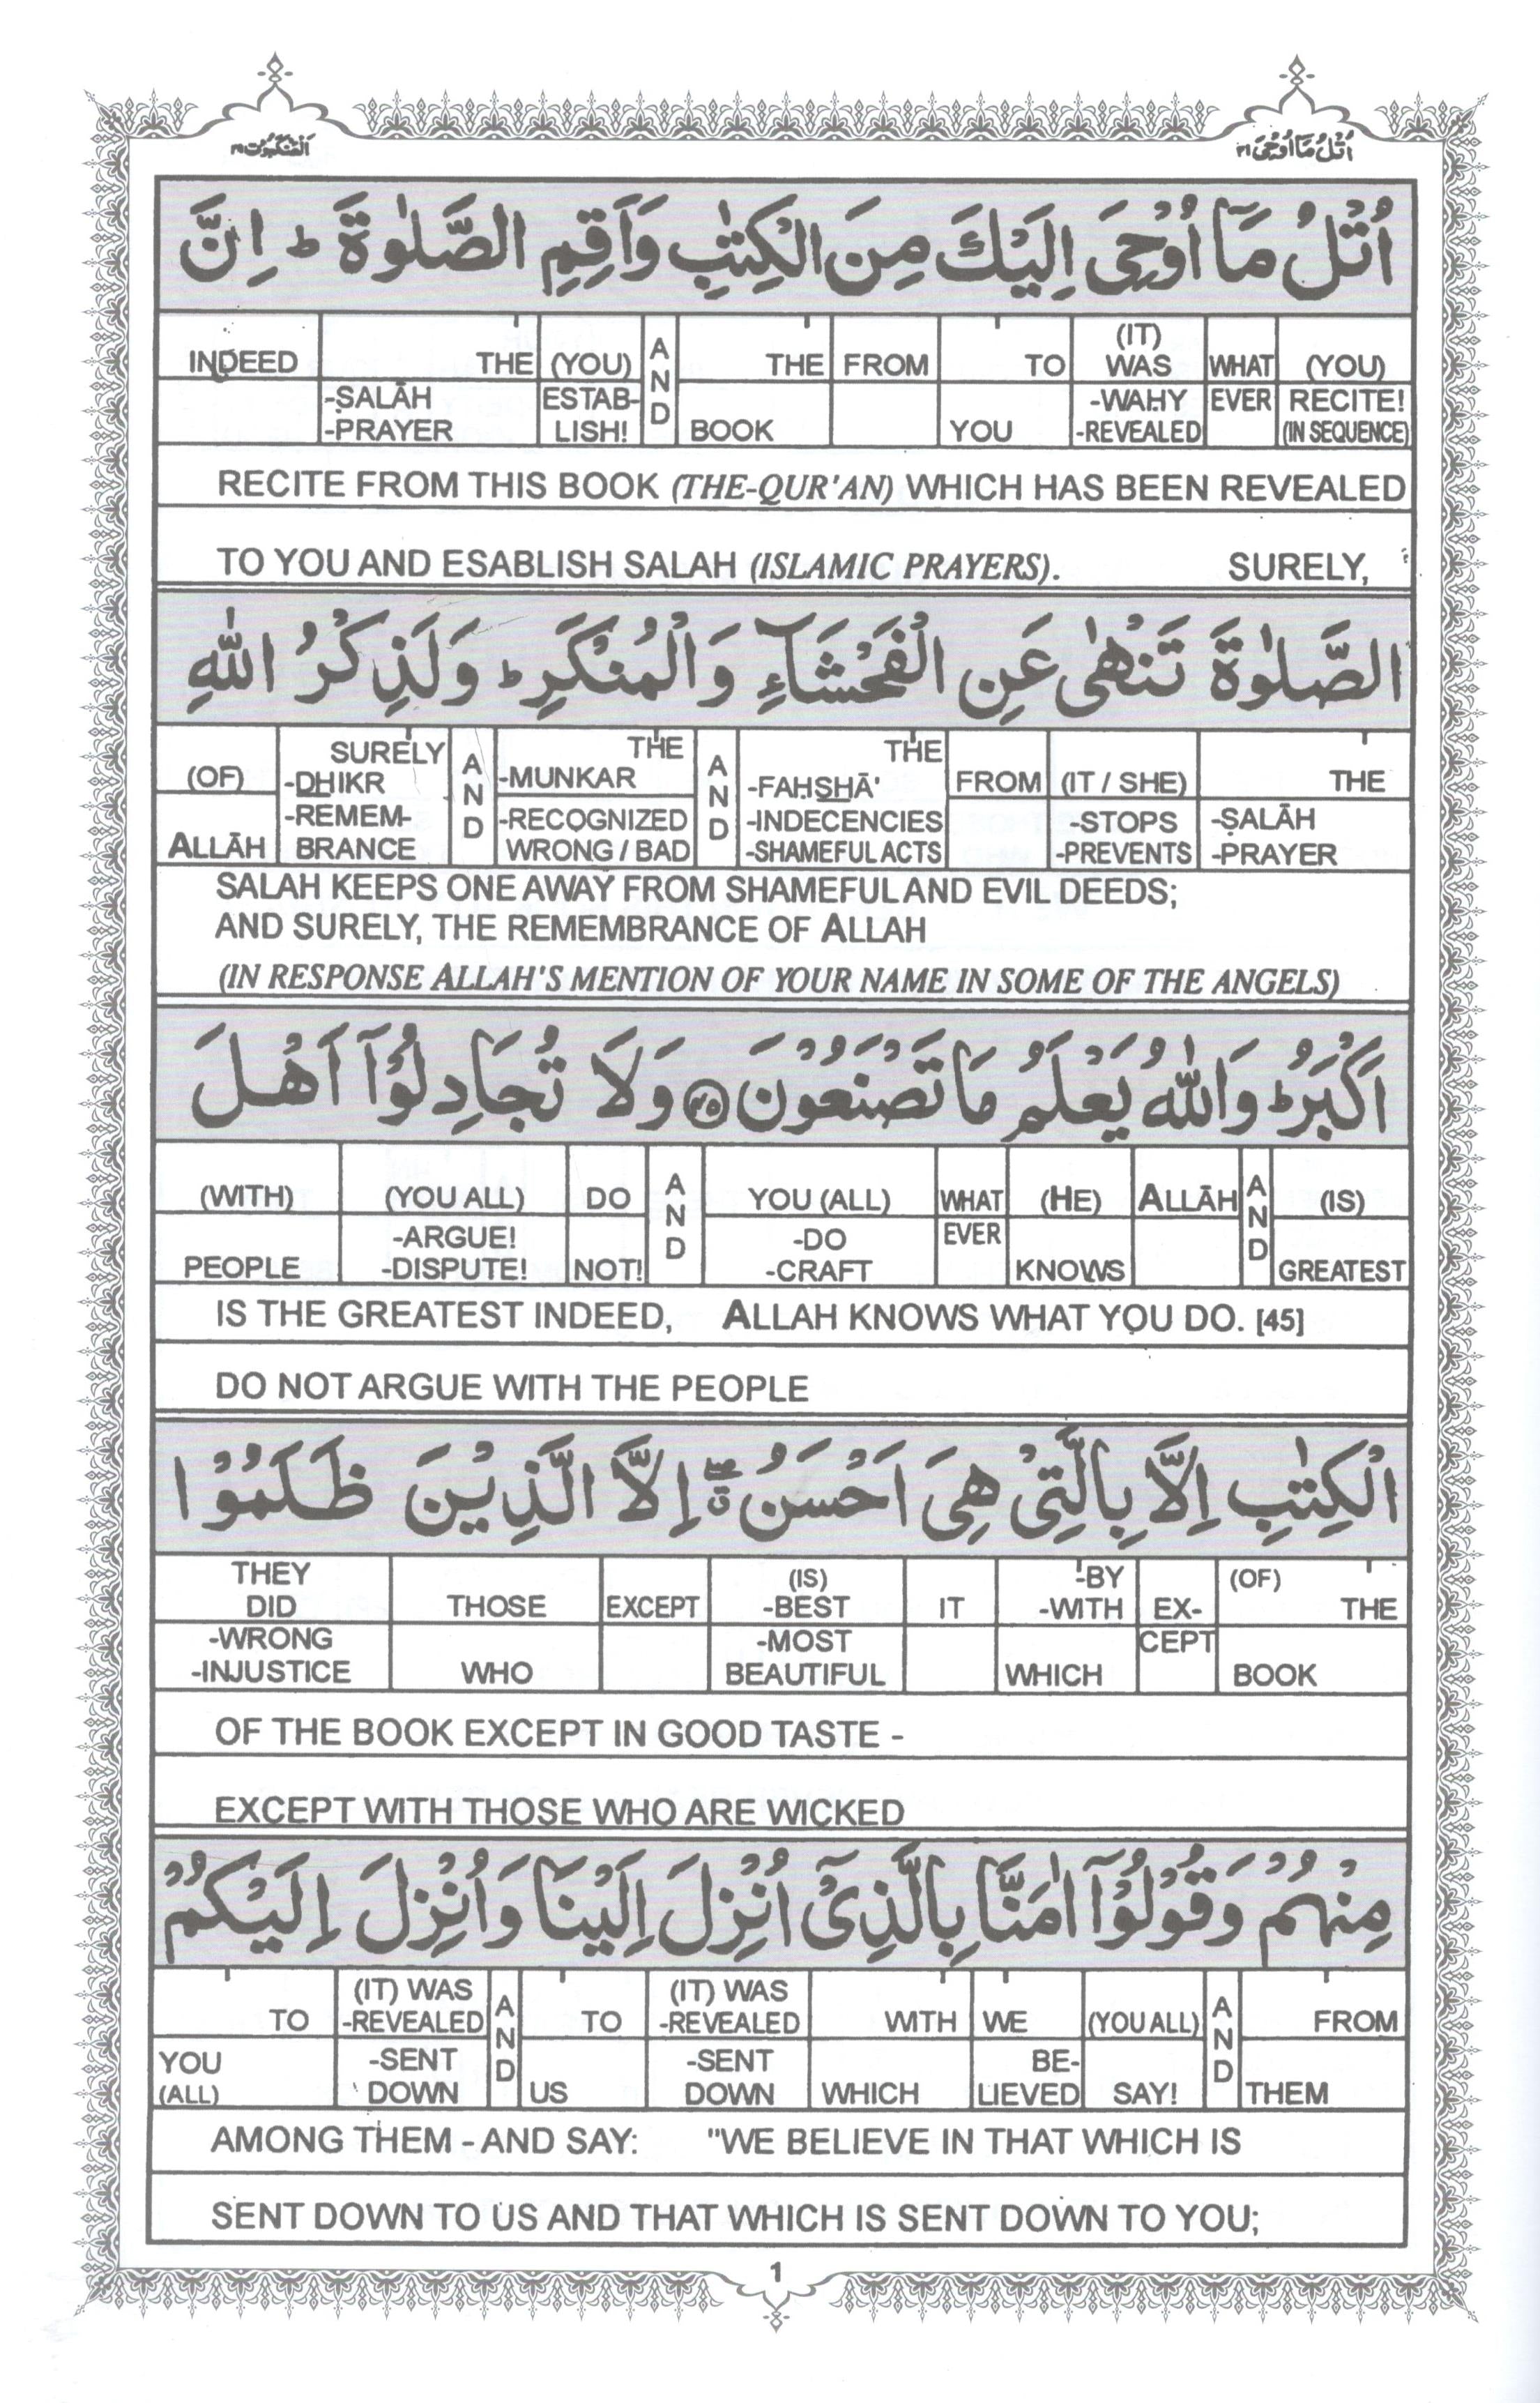 اُتْلُ مَآ اُوْحِىَ ٢١
اَلْعَنْكَبُوْت ٢٩
اُتْلُ مَآ اُوْحِىَ اِلَيْكَ مِنَ الْكِتٰبِ وَاَقِمِ الصَّلٰوةَ ؕ اِنَّ
(IT)
INDEED THE (YOU) AND THE FROM TO WAS WHAT (YOU)
-ṢALĀH ESTAB- -WAḤY EVER RECITE!
-PRAYER LISH! BOOK YOU -REVEALED (IN SEQUENCE)
RECITE FROM THIS BOOK (THE-QUR'AN) WHICH HAS BEEN REVEALED
TO YOU AND ESABLISH SALAH (ISLAMIC PRAYERS). SURELY,
الصَّلٰوةَ تَنْهٰى عَنِ الْفَحْشَآءِ وَالْمُنْكَرِ ؕ وَلَذِكْرُ اللّٰهِ
SURELY AND THE AND THE
(OF) -DHIKR -MUNKAR -FAḤSHĀ' FROM (IT / SHE) THE
-REMEM- -RECOGNIZED -INDECENCIES -STOPS -ṢALĀH
ALLĀH BRANCE WRONG / BAD -SHAMEFUL ACTS -PREVENTS -PRAYER
SALAH KEEPS ONE AWAY FROM SHAMEFUL AND EVIL DEEDS;
AND SURELY, THE REMEMBRANCE OF ALLAH
(IN RESPONSE ALLAH'S MENTION OF YOUR NAME IN SOME OF THE ANGELS)
اَكْبَرُ ؕ وَاللّٰهُ يَعْلَمُ مَا تَصْنَعُوْنَ ﴿٤٥﴾ وَلَا تُجَادِلُوْٓا اَهْلَ
(WITH) (YOU ALL) DO AND YOU (ALL) WHAT (HE) ALLĀH AND (IS)
-ARGUE! -DO EVER
PEOPLE -DISPUTE! NOT! -CRAFT KNOWS GREATEST
IS THE GREATEST INDEED, ALLAH KNOWS WHAT YOU DO. [45]
DO NOT ARGUE WITH THE PEOPLE
الْكِتٰبِ اِلَّا بِالَّتِىْ هِىَ اَحْسَنُ ۖ اِلَّا الَّذِيْنَ ظَلَمُوْا
THEY (IS) -BY (OF)
DID THOSE EXCEPT -BEST IT -WITH EX- THE
-WRONG -MOST CEPT
-INJUSTICE WHO BEAUTIFUL WHICH BOOK
OF THE BOOK EXCEPT IN GOOD TASTE -
EXCEPT WITH THOSE WHO ARE WICKED
مِنْهُمْ وَقُوْلُوْٓا اٰمَنَّا بِالَّذِىْٓ اُنْزِلَ اِلَيْنَا وَاُنْزِلَ اِلَيْكُمْ
(IT) WAS AND (IT) WAS AND
TO -REVEALED TO -REVEALED WITH WE (YOU ALL) FROM
YOU -SENT -SENT BE-
(ALL) DOWN US DOWN WHICH LIEVED SAY! THEM
AMONG THEM - AND SAY: "WE BELIEVE IN THAT WHICH IS
SENT DOWN TO US AND THAT WHICH IS SENT DOWN TO YOU;
1